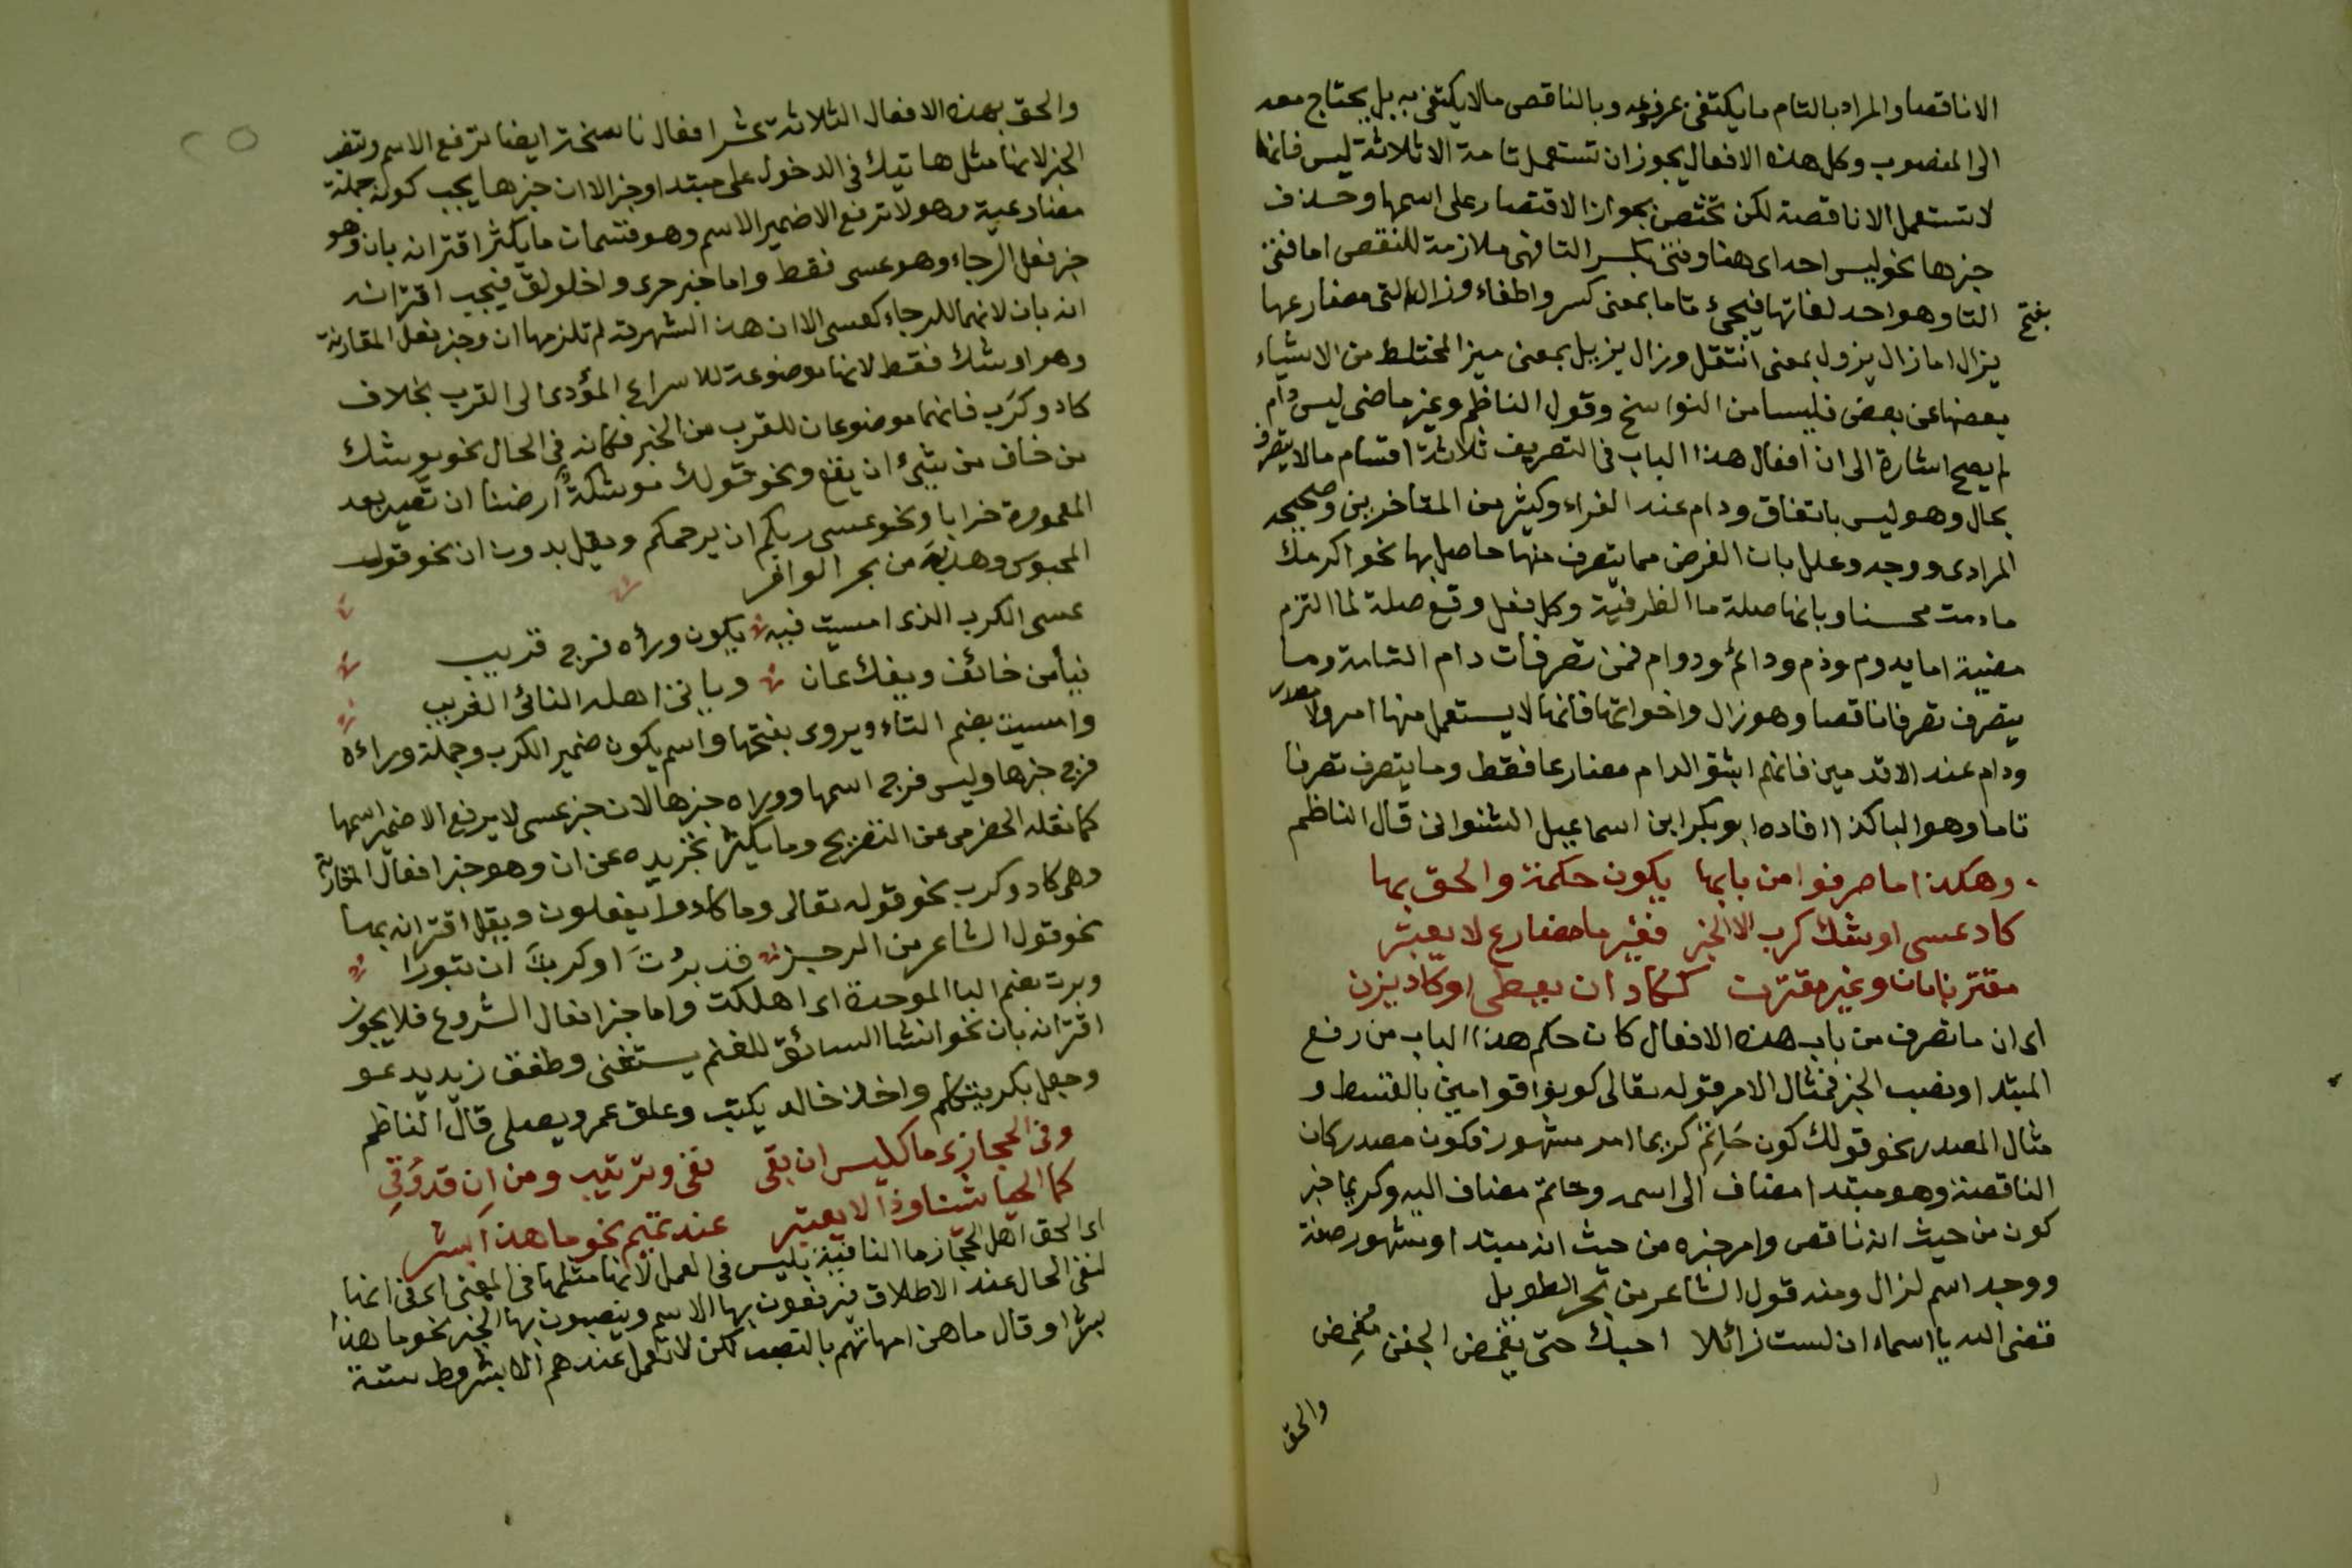 الا ناقصا والمراد بالتام ما يكتفى بمرفوعه وبالناقص ما لا يكتفى به بل يحتاج معه
الى المنصوب وكل هذه الافعال يجوز ان تستعمل تامة الا ثلاثة ليس فانها
لا تستعمل الا ناقصة لكن تختص بجواز الاقتصار على اسمها وحذف
خبرها نحو ليس احد اى هنا وفتئ بكسر التا فهى ملازمة للنقص اما فتئ
بفتح
التا وهو احد لغاتها فيجئ تاما بمعنى كسر واطفاء وزال التى مضارعها
يزال اما زال يزول بمعنى انتقل وزال يزيل بمعنى ميز المختلط من الاشياء
بعضها عن بعض فليسا من النواسخ وقول الناظم وغير ماضى ليس دام
لم يصح اشارة الى ان افعال هذا الباب فى التصريف ثلاثة اقسام ما لا يتصرف
بحال وهو ليس باتفاق ودام عند الفراء وكثير من المتاخرين وصححه
المرادى ووجه وعلل بان الغرض مما يتصرف منها حاصل بها نحو اكرمك
ما دمت محسنا وبانها صلة ما الظرفية وكل فعل وقع صلة لما التزم
مضيه اما يدوم ودم ودائم ودوام فمن تصرفات دام التامة وما
يتصرف تصرفا ناقصا وهو زال واخواتها فانها لا يستعمل منها امر ولا مصدر
ودام عند الاقدمين فانهم اثبتوا لدام مضارعا فقط وما يتصرف تصرفا
تاما وهو الباكذا افاده ابو بكر ابن اسماعيل الشنوانى قال الناظم
وهكذا ما صرفوا من بابها يكون حكمة والحق بها
كاد عسى اوشك كرب الا الخبر فغير ما مضارع لا يعتبر
مقترنا بان وغير مقترن ككاد ان يعطى او كاد يزن
اى ان ما تصرف من باب هذه الافعال كان حكم هذا الباب من رفع
المبتدا ونصب الخبر فمثال الامر قوله تعالى كونوا قوامين بالقسط و
مثال المصدر نحو قولك كون حاتم كريما امر مشهور فكون مصدر كان
الناقصة وهو مبتدا مضاف الى اسمه وحاتم مضاف اليه وكريما خبر
كون من حيث انه ناقص وامر خبره من حيث انه مبتدا ومشهور صفة
ووجد اسم لزال ومنه قول الشاعر من بحر الطويل
قضى الله يا اسماء ان لست زائلا احبك حتى يغمض الجفن مغمض
والحق
والحق بهذه الافعال الثلاثة عشر افعال ناسخة ايضا ترفع الاسم وتنصب
الخبر لانها مثل هاتيك فى الدخول على مبتدا وخبر الا ان خبرها يجب كونه جملة
مضارعية وهو لا ترفع الا ضمير الاسم وهو قسمان ما يكثر اقترانه بان وهو
خبر فعل الرجاء وهو عسى فقط واما خبر حرى واخلولق فيجب اقترانه
انه بان لانهما للرجاء كعسى الا ان هذه الشهرته لم تلزمها ان وخبر فعل المقاربة
وهو اوشك فقط لانها موضوعة للاسراع المؤدى الى القرب بخلاف
كاد وكرب فانهما موضوعان للقرب من الخبر فكانه فى الحال نحو يوشك
من خاف من شئ ان يقع ونحو قولك موشكة ارضنا ان تصير بعد
المعمورة خرابا ونحو عسى ربكم ان يرحمكم ويقل بدون ان نحو قول
المحبوس وهدبة من بحر الوافر
عسى الكرب الذى امسيت فيه يكون وراه فرج قريب
فيأمن خائف ويفك عان وياتى اهله النائى الغريب
وامسيت بضم التاء ويروى بفتحها واسم يكون ضمير الكرب وجملة وراءه
فرج خبرها وليس فرج اسمها ووراه خبرها لان خبر عسى لا يرفع الا ضمير اسمها
كما نقله الحضرمى عن التصريح وما يكثر تجريده عن ان وهو خبر افعال المقاربة
وهى كاد وكرب نحو قوله تعالى وما كادوا يفعلون ويقل اقترانه بها
نحو قول الشاعر من الرجز قد برت او كربت ان تبورا
وبرت بضم البا الموحدة اى اهلكت واما خبر افعال الشروع فلا يجوز
اقترانه بان نحو انشا السائق للغنم يستغنى وطفق زيد يدعو
وجعل بكر يتكلم واخذ خالد يكتب وعلق عمر ويصلى قال الناظم
وفى الحجازى ما كليس ان بقى نفى وترتيب ومن ان قد وقى
كما الحيا شتا وذا لا يعتبر عند تميم نحو ما هذا بشر
اى الحق اهل الحجاز ما النافية بليس فى العمل لانها مثلها فى المعنى اى فى انها
لنفى الحال عند الاطلاق فيرفعون بها الاسم وينصبون بها الخبر نحو ما هذا
بشرا وقال ما هن امهاتهم بالنصب لكن لا تعمل عندهم الا بشروط ستة